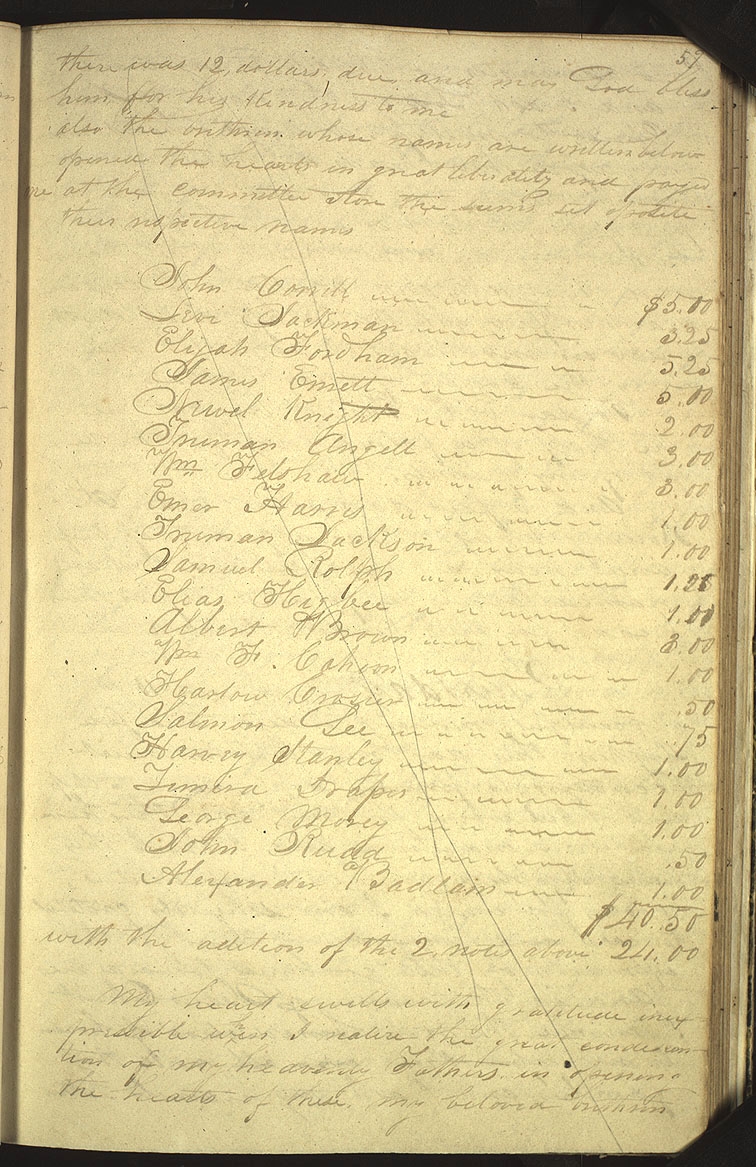 59
there was 12, dollars, due, and may God bless
him for his kindness to me
also the brethren whose names are written below
opened the hearts in great liberality and payed
me at the committee Store the sums set oposite
their respective names
John Corrill $5.00
Levi Jackman 3.25
Elijah Fordham 5.25
James Emett 5.00
Newel Knight 2.00
Truman Angell 3.00
Wm Felshaw 3.00
Emer Harris 1.00
Truman Jackson 1.00
Samuel Rolph 1.25
Elias Higbee 1.00
Albert Brown 3.00
Wm F. Cahoon 1.00
Harlow Crosier .50
Salmon Gee .75
Harvey Stanley 1.00
Zemira Draper 1.00
George Morey 1.00
John Rudd .50
Alexander Badlam 1.00
$40.50
with the adition of the 2, notes above 24.00
My heart swells with gratitude inex
presible when I realize the great condesen
tion of my heavenly Fathers, in opening
the hearts of these, my beloved brethren